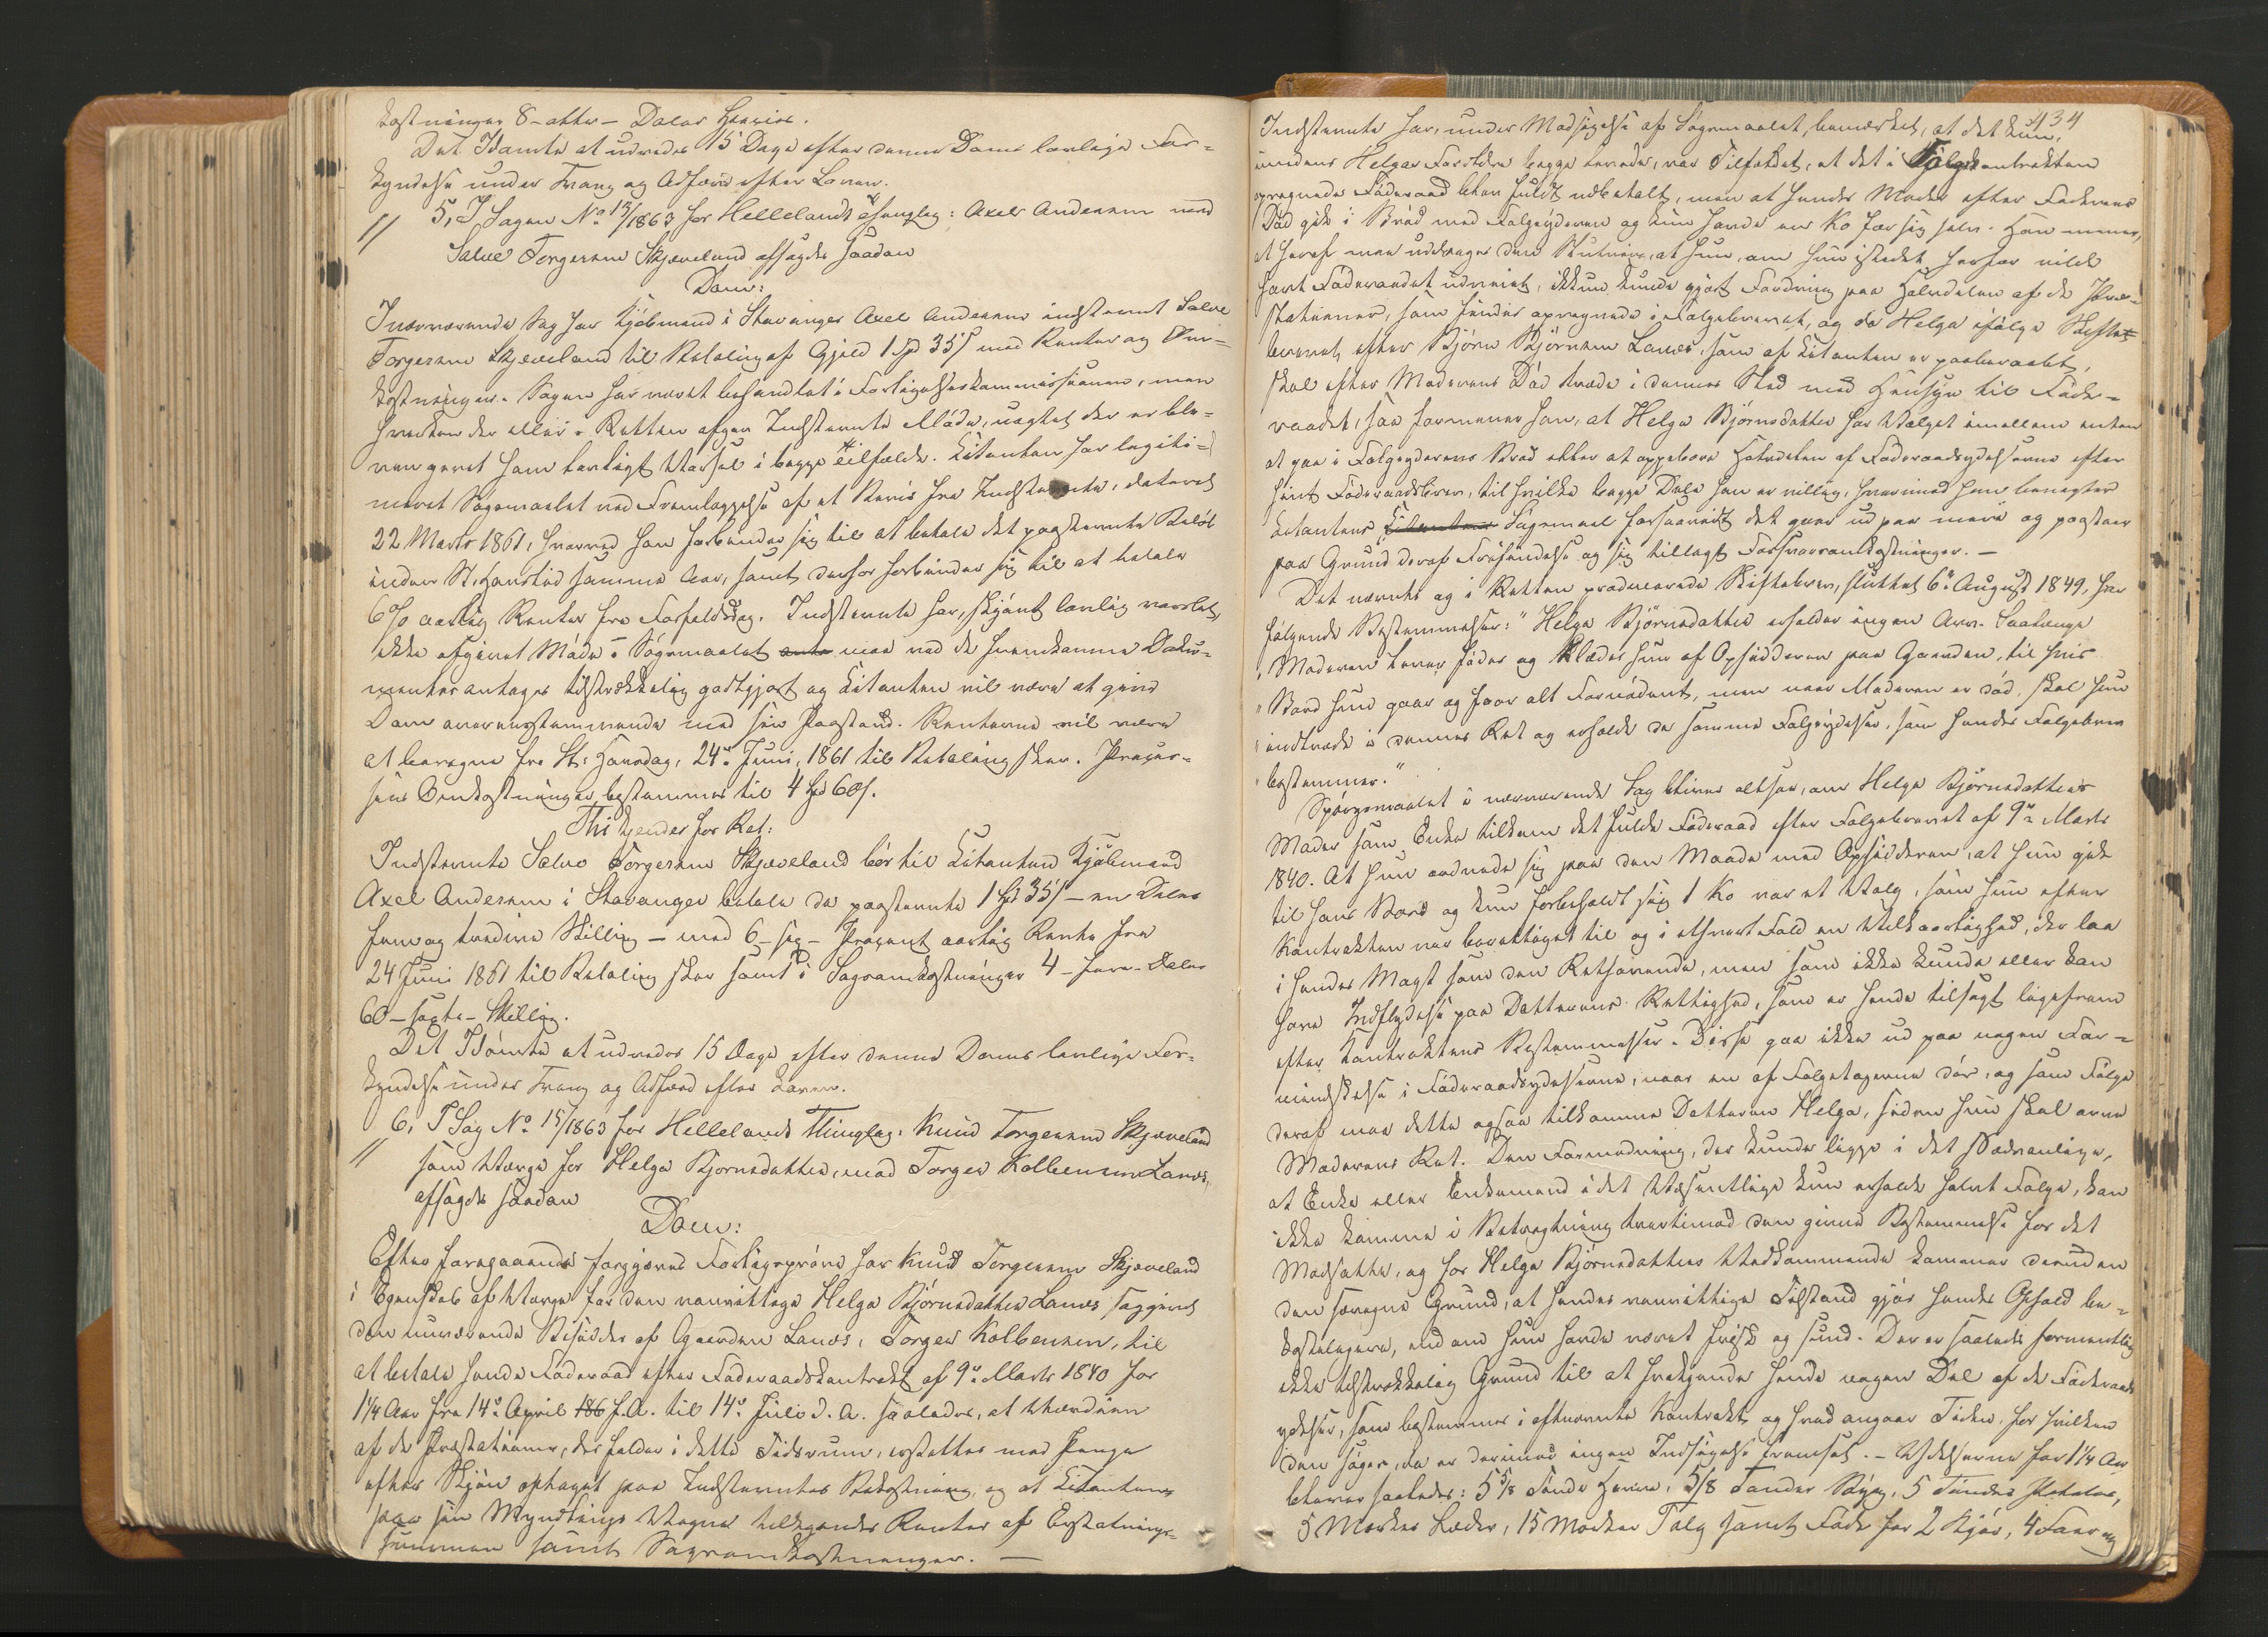 kostninger 8 - otte - Daler Henvise.
Det Idømte at udredes 15 Dage efter denne Doms lovlige For-
kyndelse under Tvang og Adfærd efter Loven.
5, I Sagen No 12/1863 for Hellelands Thinglag: Axel Andersen mod
Salve Torgersen Skjæveland afsagdes saadan
Dom:
I nærværende Sag har Kjøbmand i Stavanger Axel Andersen indstevnt Salve
Torgersen Skjæveland til Betaling af Gjæld 1 Spd 35 s med Renter og Om-
kostninger. Sagen har været behandlet i Forligelseskommissionen, men
hverken der eller i Retten afgav Indstevnte Møde, uagtet der er ble-
ven givet ham lovligt Varsel i begge Tilfælde. Citanten har legiti-
meret Søgsmaalet ved Fremlæggelse af et Bevis fra Indstevnte, dateret
22 Marts 1861, hvorved han forbinder sig til at betale det paastevnte Beløb
inden St. Hanstid samme Aar, samt derfor forbinder sig til at betale
6 % aarlig Renter fra Forfaldsdag. Indstevnte har, skjønt lovlig varslet,
ikke afgivet Møde i Søgsmaalet maa ved de fremkomne Doku-
menter antages tilstrækkelig godtgjort og Citanten vil være at give
Dom overensstemmende med sin Paastand. Renterne vil være
at beregne fra St: Hansdag, 24de Juni, 1861 til Betaling sker. Proces-
sens Omkostninger bestemmes til 4 Spd 60 s.
Thi kjendes for Ret:
Indstevnte Salve Torgersen Skjæveland bør til Citanten Kjøbmand
Axel Andersen i Stavanger betale de paastevnte 1 Spd 35 s - en Daler
fem og tredive Skilling - med 6 - sex - Procent aarlig Rente fra
24 Juni 1861 til Betaling sker samt i Sagsomkostninger 4 - fire - Daler
60 - sexti - Skilling.
Det Idømte at udredes 15 Dage efter denne Doms lovlige For-
kyndelse under Tvang og Adfærd efter Loven.
6, I Sag No 15/1863 for Hellelands Thinglag: Knud Torgersen Skjæveland
som Værge for Helga Bjørnsdatter, mod Torger Kolbensen Lanes,
afsagdes saadan
Dom:
Efter foregaaende forgjæves Forligsprøve har Knud Torgersen Skjæveland
i Egenskab af Værge for den vanvittige Helga Bjørnsdatter Lanes sagsøgt
den nuværende Besidder af Gaarden Lanes, Torger Kolbensen, til
at betale hende Føderaad efter Føderaadskontrakt af 9de Marts 1840 for
1 1/4 Aar fra 14de April f. A. til 14de Juli d. A. saaledes, at Værdien
af de Præstationer, der falder i dette Tidsrum, erstattes med Penge
efter Skjøn optaget paa Indstevntes Bekostning, og at Citanten
paa sin Myndlings Vegne tilkjendes Renter af Erstatnings-
summen samt Sagsomkostninger. -
434
Indstevnte har, under Modsigelse af Søgsmaalet, bemærket, at det kun,
imedens Helgas Forældre begge levede, var Tilfældet, at det i Følgekontrakten
opregnede Føderaad blev fuldt udbetalt, men at hendes Moder efter Faderens
Død gik i Brød med Følgeyderen og kun havde en Ko for sig selv. Han mener,
at heraf maa uddrages den Slutning, at hun, om hun istedet herfor vilde
havt Føderaadet udredet, ikkun kunde gjøre Fordring paa Halvdelen af de Præ-
stationer, som findes opregnede i Følgebrevet, og da Helga ifølge Skifte-
brevet efter Bjørn Bjørnsen Lanes, som af Citanten er paaberaabt,
skal efter Moderens Død træde i dennes Sted med Hensyn til Føde-
raadet, saa formener han, at Helga Bjørnsdatter har Valget imellem enten
at gaa i Følgeyderens Brød eller at oppebære Halvdelen af Føderaadsydelserne efter
hint Føderaadsbrev, til hvilke begge Dele han er villig, hvorimod han benegter
Citantens Søgsmaal forsaavidt det gaar ud paa mere og paastaar
paa Grund deraf Frifindelse og sig tillagt Forsvarsomkostninger. -
Det nævnte og i Retten producerede Skiftebrev, sluttet 6te August 1849, har
følgende Bestemmelser: "Helga Bjørnsdatter erholder ingen Arv. Saalænge
"Moderen lever, fødes og klædes hun af Opsidderen paa Gaarden, til hvis
"Bord hun gaar og faar alt Fornødent, men naar Moderen er død, skal hun
"indtræde i dennes Ret og erholde de samme Følgeydelser, som hendes Følgebrev
"bestemmer."
Spørgsmaalet i nærværende Sag bliver altsaa, om Helga Bjørnsdatters
Moder som Enke tilkom det fulde Føderaad efter Følgebrevet af 9de Marts
1840. At hun ordnede sig paa den Maade med Opsidderen, at hun gik
til hans Bord og kun forbeholdt sig 1 Ko var et Valg, som hun efter
Kontrakten var berettiget til og i ethvert Fald en Vilkaarlighed, der laa
i hendes Magt som den Rethavende, men som ikke kunde eller kan
have Indflydelse paa Datterens Rettighed, som er hende tilsagt ligefrem
efter Kontraktens Bestemmelser. Disse gaa ikke ud paa nogen For-
mindskelse i Føderaadsydelserne, naar en af Følgetagerne dør, og som Følge
deraf maa dette ogsaa tilkomme Datteren Helga, siden hun skal arve
Moderens Ret. Den Formodning, der kunde ligge i det Sædvanlige,
at Enke eller Enkemand i det Væsentlige kun erholde halvt Følge, kan
ikke komme i Betragtning tvertimod den givne Bestemmelse for det
Modsatte, og for Helga Bjørnsdatters Vedkommende kommer desuden
den særegne Grund, at hendes vanvittige Tilstand gjør hendes Ophold be-
kosteligere, end om hun havde været frisk og sund. Der er saaledes formentlig
ikke tilstrækkelig Grund til at frakjende hende nogen Del af de Føderaads-
ydelser, som bestemmes i oftnævnte Kontrakt, og hvad angaar Tiden, for hvilken
den søges, da er derimod ingen Indsigelse fremsat. - Ydelserne for 1 1/4 Aar
bliver saaledes: 5 5/8 Tønde Havre, 5/8 Tønder Byg, 5 Tønder Poteter,
5 Marker Læder, 15 Marker Talg samt Føde for 2 Kjør, 4 Faar og